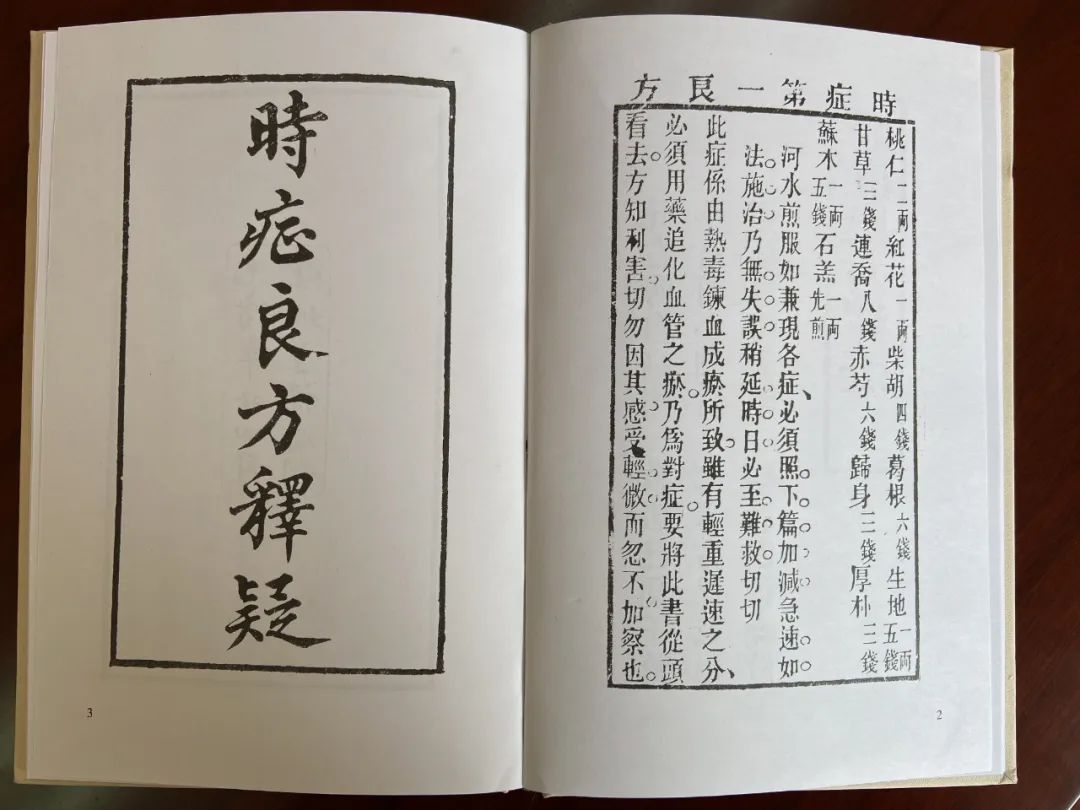 時症第一良方
桃仁二両紅花一両柴胡四錢葛根六錢生地一両五錢
甘草三錢連喬八錢赤芍六錢歸身三錢厚朴三錢
蘇木一両五錢石羔一両先煎
河水煎服如兼現各症、必須照。下篇加減急速。如。
法。施治乃無。失。誤。稍延。時。日。必至。難。救。切切
此症係由熱毒鍊血成瘀所致。雖有輕重遲速之分、
必須用藥追化血管之瘀。乃爲對症。要將此書從頭
看去。方知利害。切勿因其感。受輕。微。而忽不。加察也。
2
時症良方釋疑
3